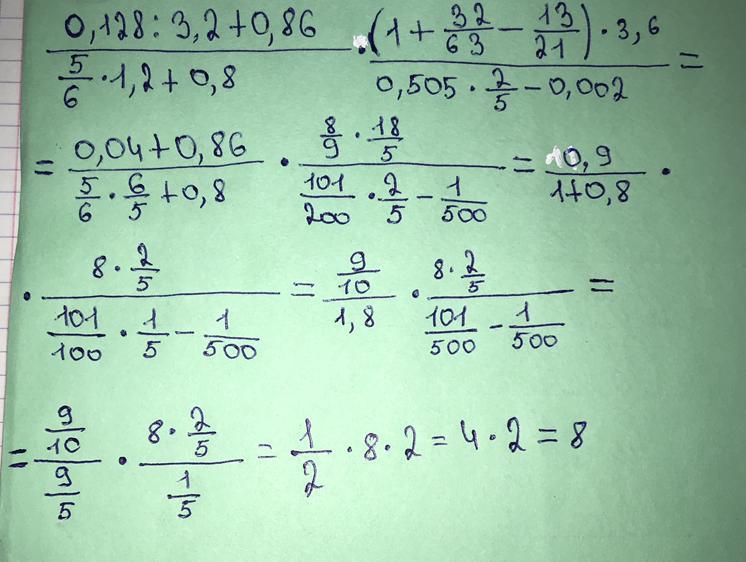 (0,128 : 3,2 + 0,86) / (5/6 · 1,2 + 0,8) · ((1 + 32/63 − 13/21) · 3,6) / (0,505 · 2/5 − 0,002) =
= (0,04 + 0,86) / (5/6 · 6/5 + 0,8) · (8/9 · 18/5) / (101/200 · 2/5 − 1/500) = 0,9 / (1 + 0,8) ·
· (8 · 2/5) / (101/100 · 1/5 − 1/500) = (9/10) / 1,8 · (8 · 2/5) / (101/500 − 1/500) =
= (9/10) / (9/5) · (8 · 2/5) / (1/5) = 1/2 · 8 · 2 = 4 · 2 = 8